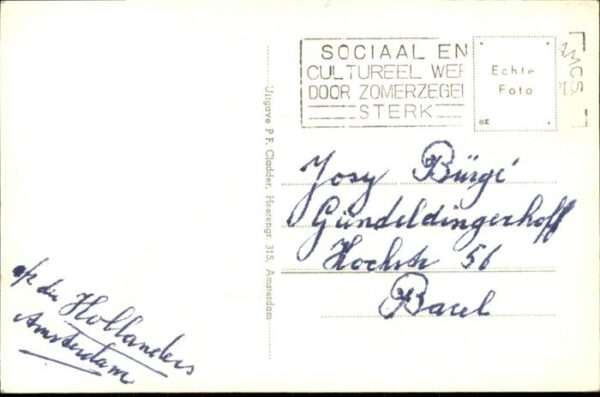 SOCIAAL EN
CULTUREEL WER
DOOR ZOMERZEGEL
STERK
Echte
Foto
Uitgave P.F. Cladder, Heerengr. 315, Amsterdam
Josy Bürgi
Gündeldingerhoff
Hochstr 56
Basel
Hollanders
Amsterdam